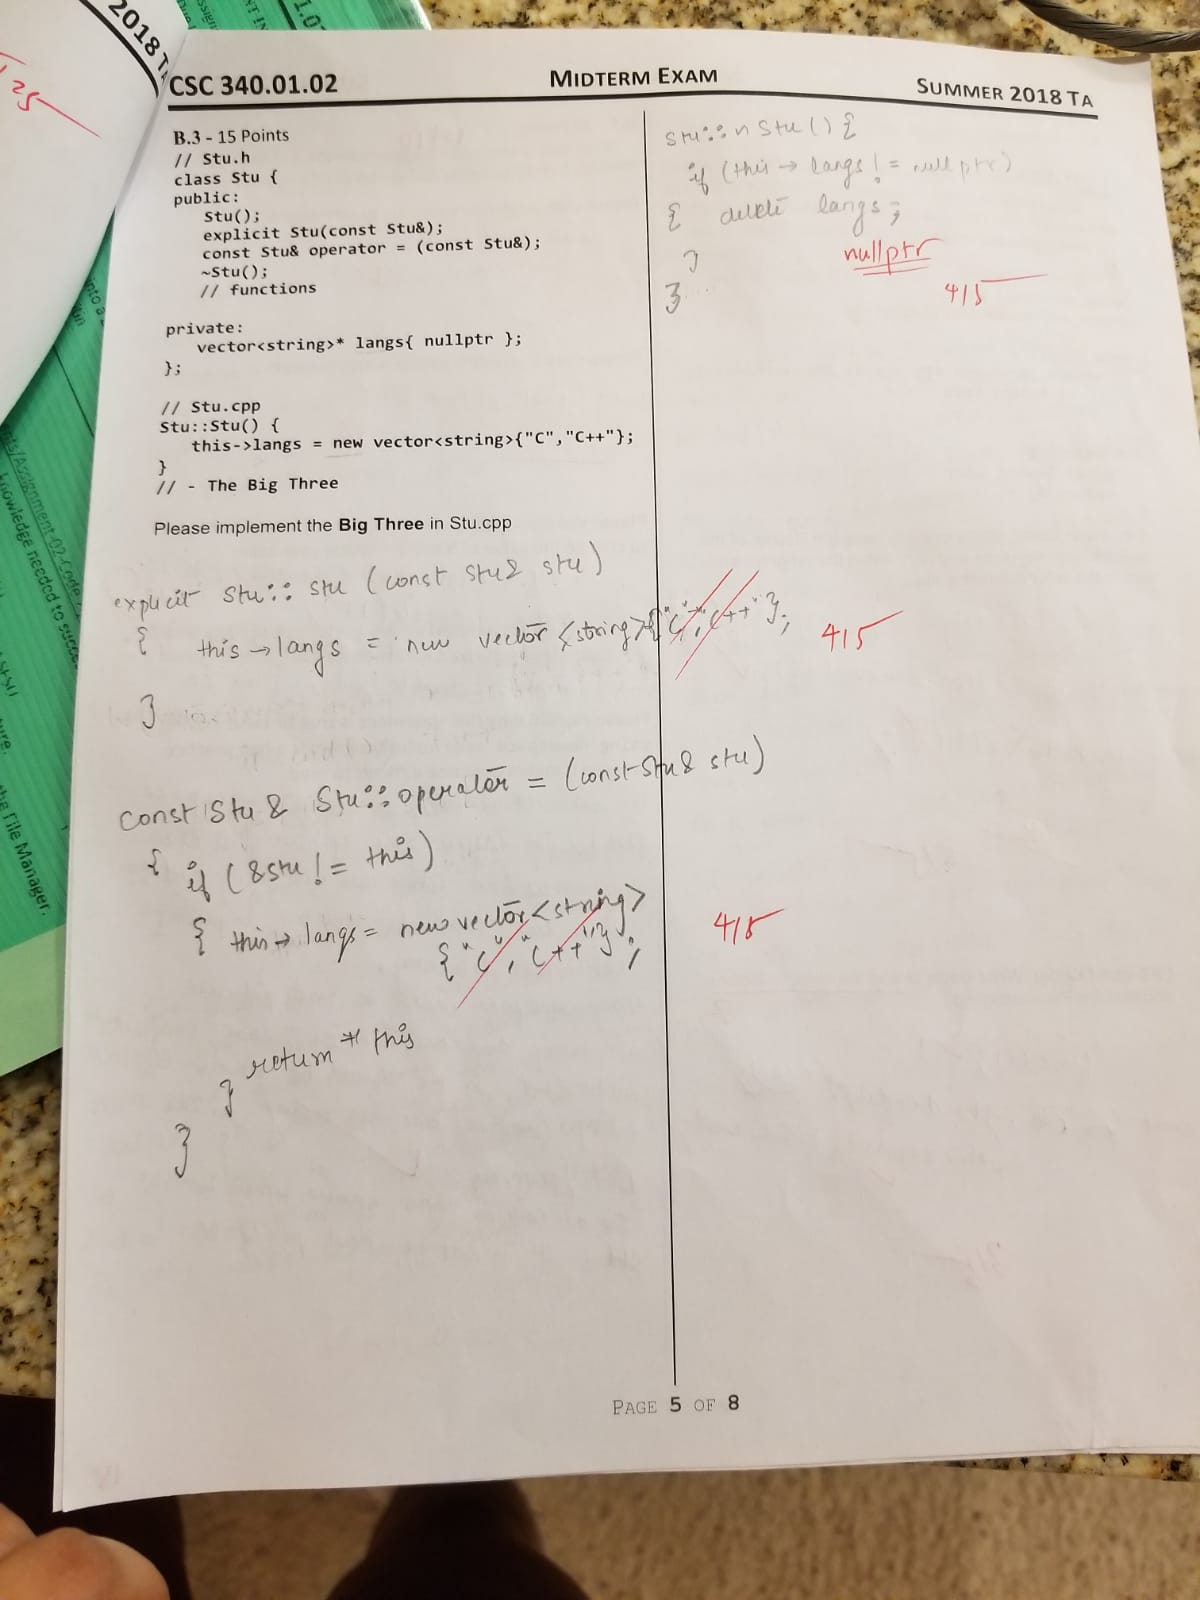 2018 TA
CSC 340.01.02
MIDTERM EXAM
SUMMER 2018 TA
B.3 - 15 Points
// Stu.h
class Stu {
public:
Stu();
explicit Stu(const Stu&);
const Stu& operator = (const Stu&);
~Stu();
// functions
private:
vector<string>* langs{ nullptr };
};
// Stu.cpp
Stu::Stu() {
this->langs = new vector<string>{"C","C++"};
}
// - The Big Three
Please implement the Big Three in Stu.cpp
explicit Stu:: stu (const stu& stu)
{ this → langs = new vector <string>{"C","C++"};
4/5
}
const Stu & Stu::operator = (const Stu& stu)
{ if (&stu != this)
{ this → langs = new vector<string>
{"C","C++"};
4/5
return * this
}
}
Stu::~Stu() {
if (this → langs != nullptr)
{ delete langs;
}
nullptr
4/5
}
PAGE 5 OF 8
the File Manager.